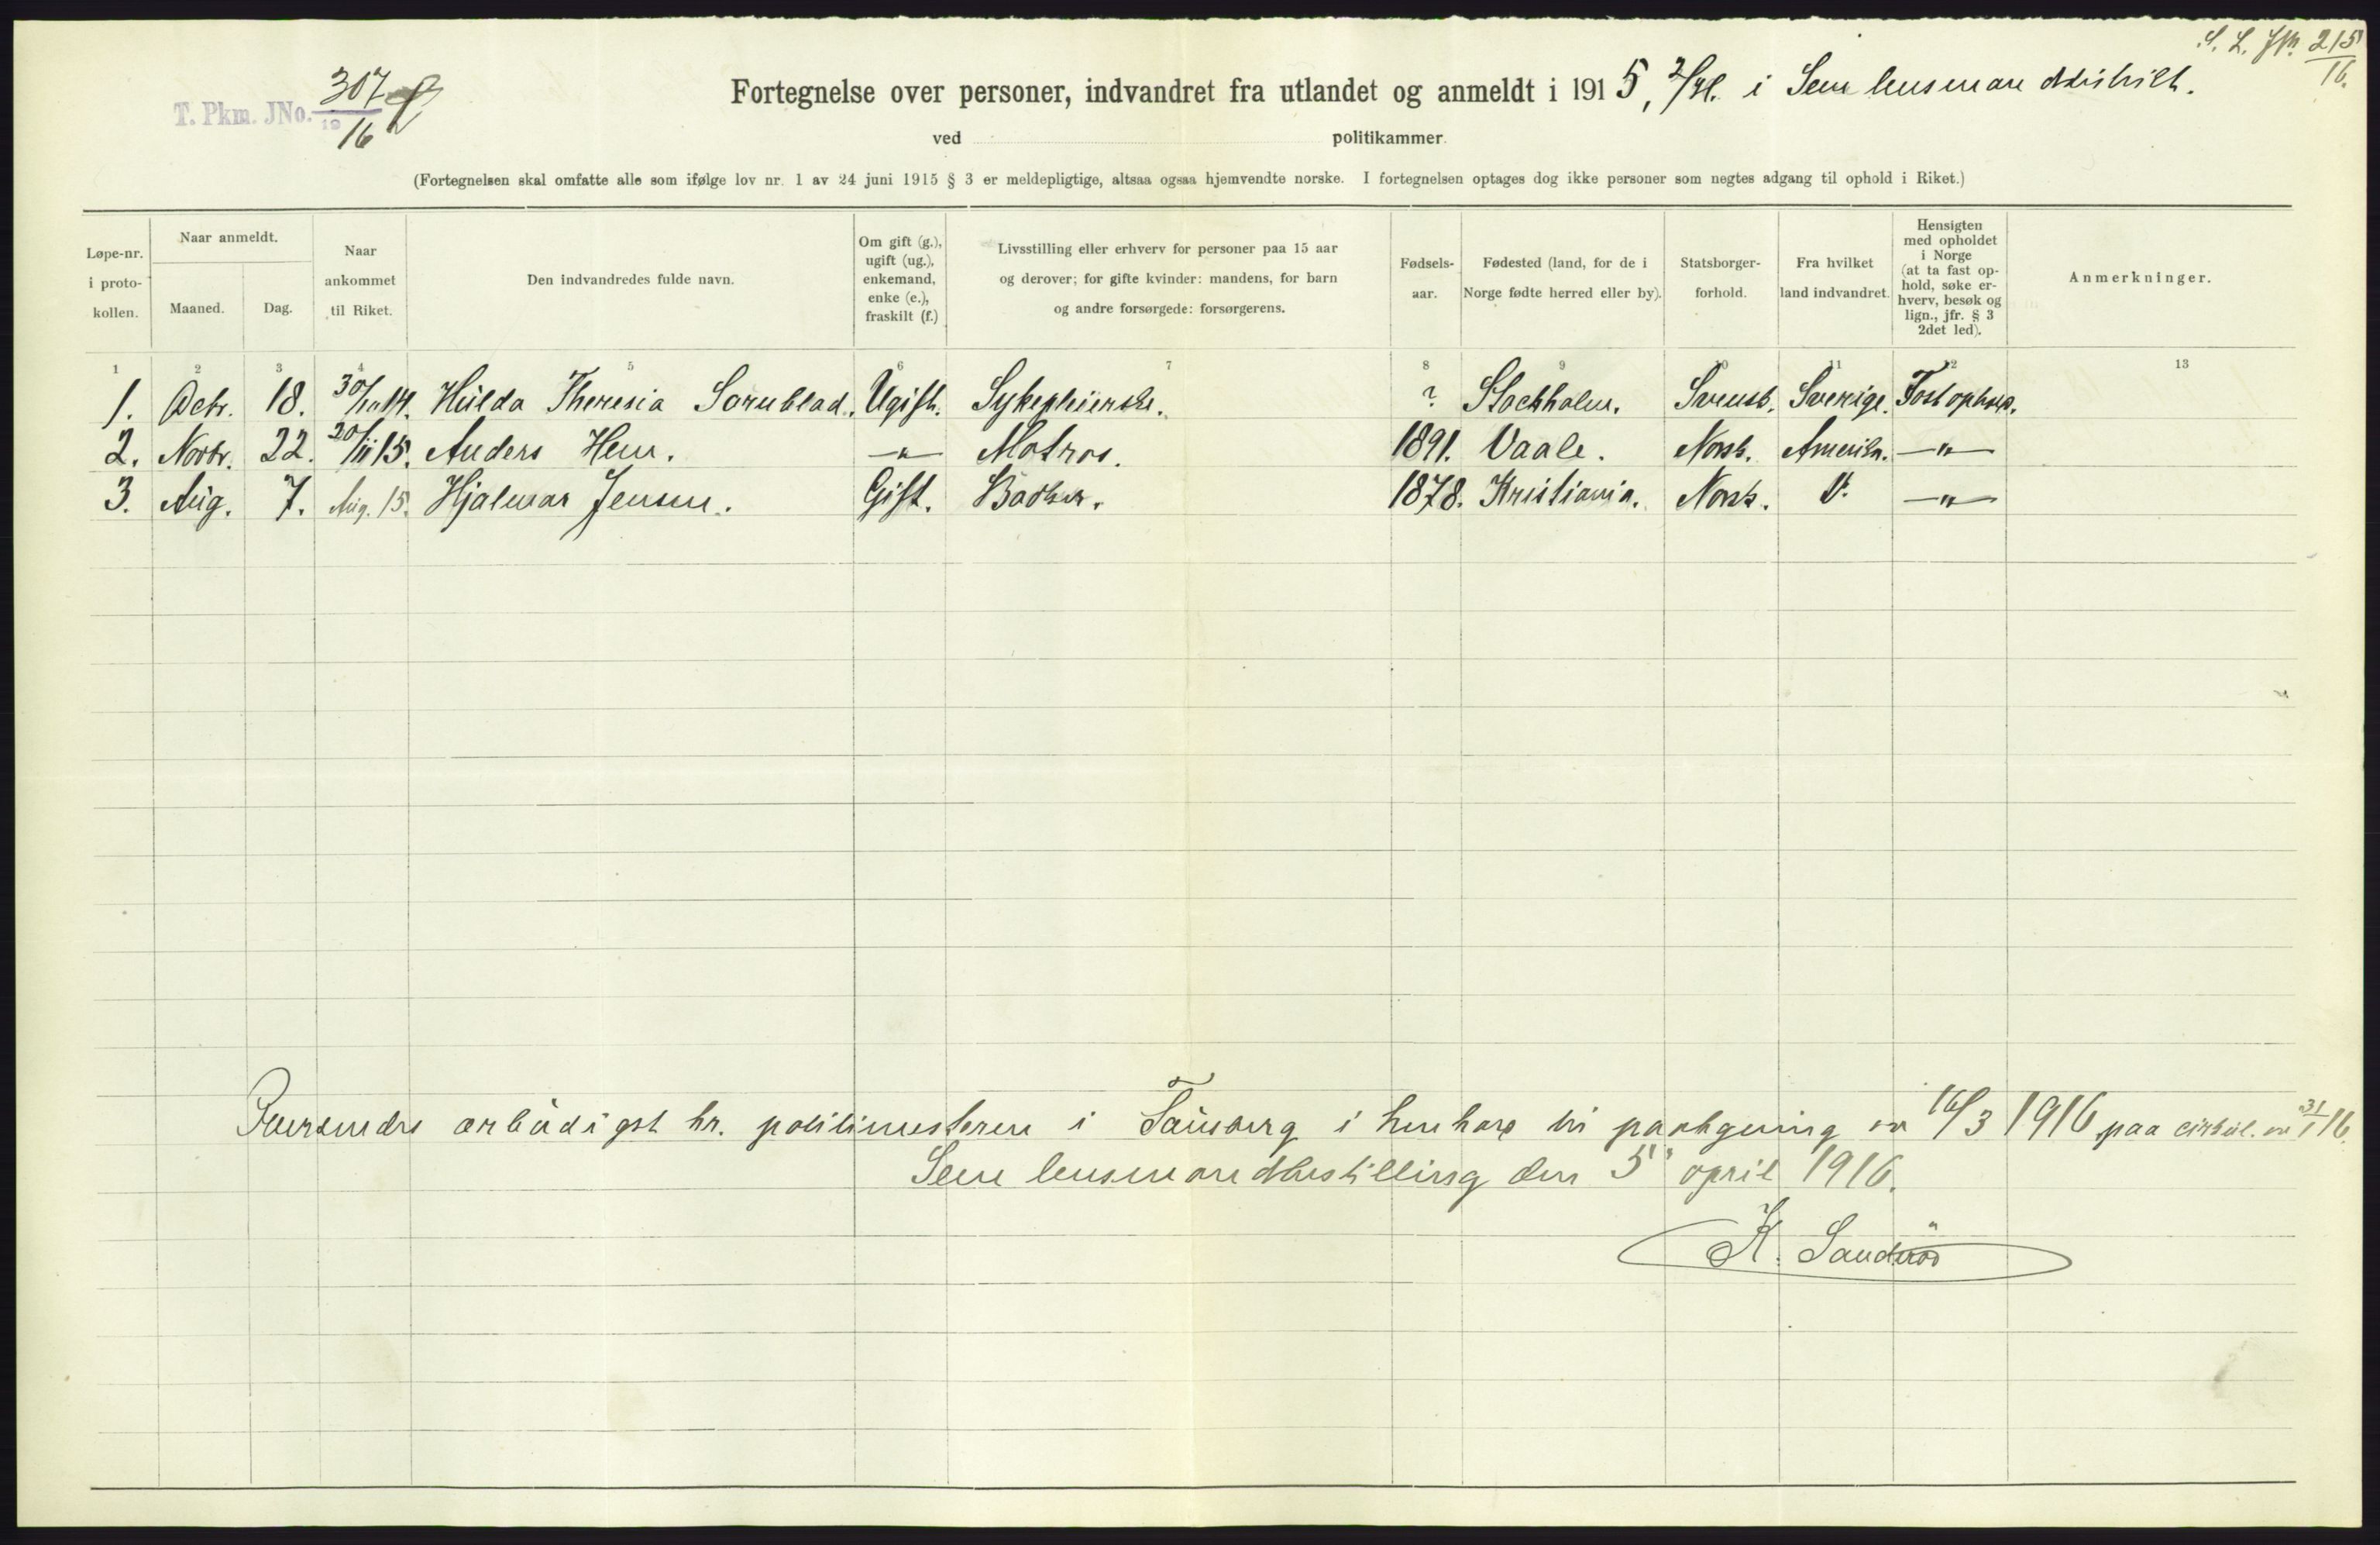 S. L. JNr. 215/16.
T. Pkm. JNo. 307/16
Fortegnelse over personer, indvandret fra utlandet og anmeldt i 1915, 2/hl. i Sem lensmansdistrikt.
ved politikammer.
(Fortegnelsen skal omfatte alle som ifølge lov nr. 1 av 24 juni 1915 § 3 er meldepligtige, altsaa ogsaa hjemvendte norske. I fortegnelsen optages dog ikke personer som negtes adgang til ophold i Riket.)
Løpe-nr. i proto-kollen. Naar anmeldt. Maaned. Dag. Naar ankommet til Riket. Den indvandredes fulde navn. Om gift (g.), ugift (ug.), enkemand, enke (e.), fraskilt (f.) Livsstilling eller erhverv for personer paa 15 aar og derover; for gifte kvinder: mandens, for barn og andre forsørgede: forsørgerens. Fødsels-aar. Fødested (land, for de i Norge fødte herred eller by). Statsborger-forhold. Fra hvilket land indvandret. Hensigten med opholdet i Norge (at ta fast op-hold, søke er-hverv, besøk og lign., jfr. § 3 2det led). Anmerkninger.
1 2 3 4 5 6 7 8 9 10 11 12 13
1. Octr. 18. 30/10 14. Hulda Theresia Sornblad. Ugift. Sykepleierske. ? Stockholm. Svensk. Sverige. Fast ophold.
2. Novbr. 22. 20/11 15. Anders Hem. —"— Matros. 1891. Vaale. Norsk. Amerika. —"—
3. Aug. 7. Aug. 15. Hjalmar Jensen. Gift. Baker. 1878. Kristiania. Norsk. —"—
Fremsendes ærbødigst hr. politimesteren i Tønsberg i henhold til paategning av 16/3 1916 paa cirkul. av 31/1 16.
Sem lensmandsbestilling den 5 april 1916.
K. Sandnød